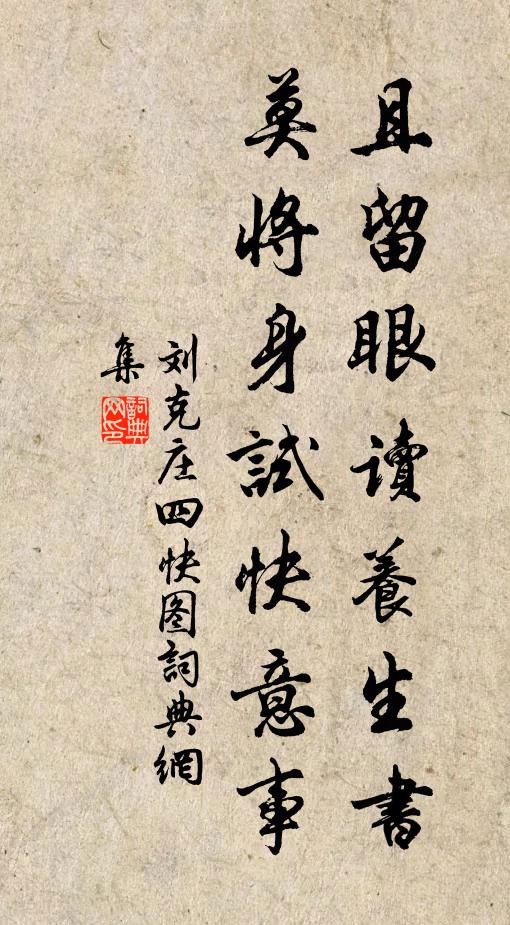 且留眼读養生書
莫將身試快意事
刘克庄四快图詞典網
集
詞典網印